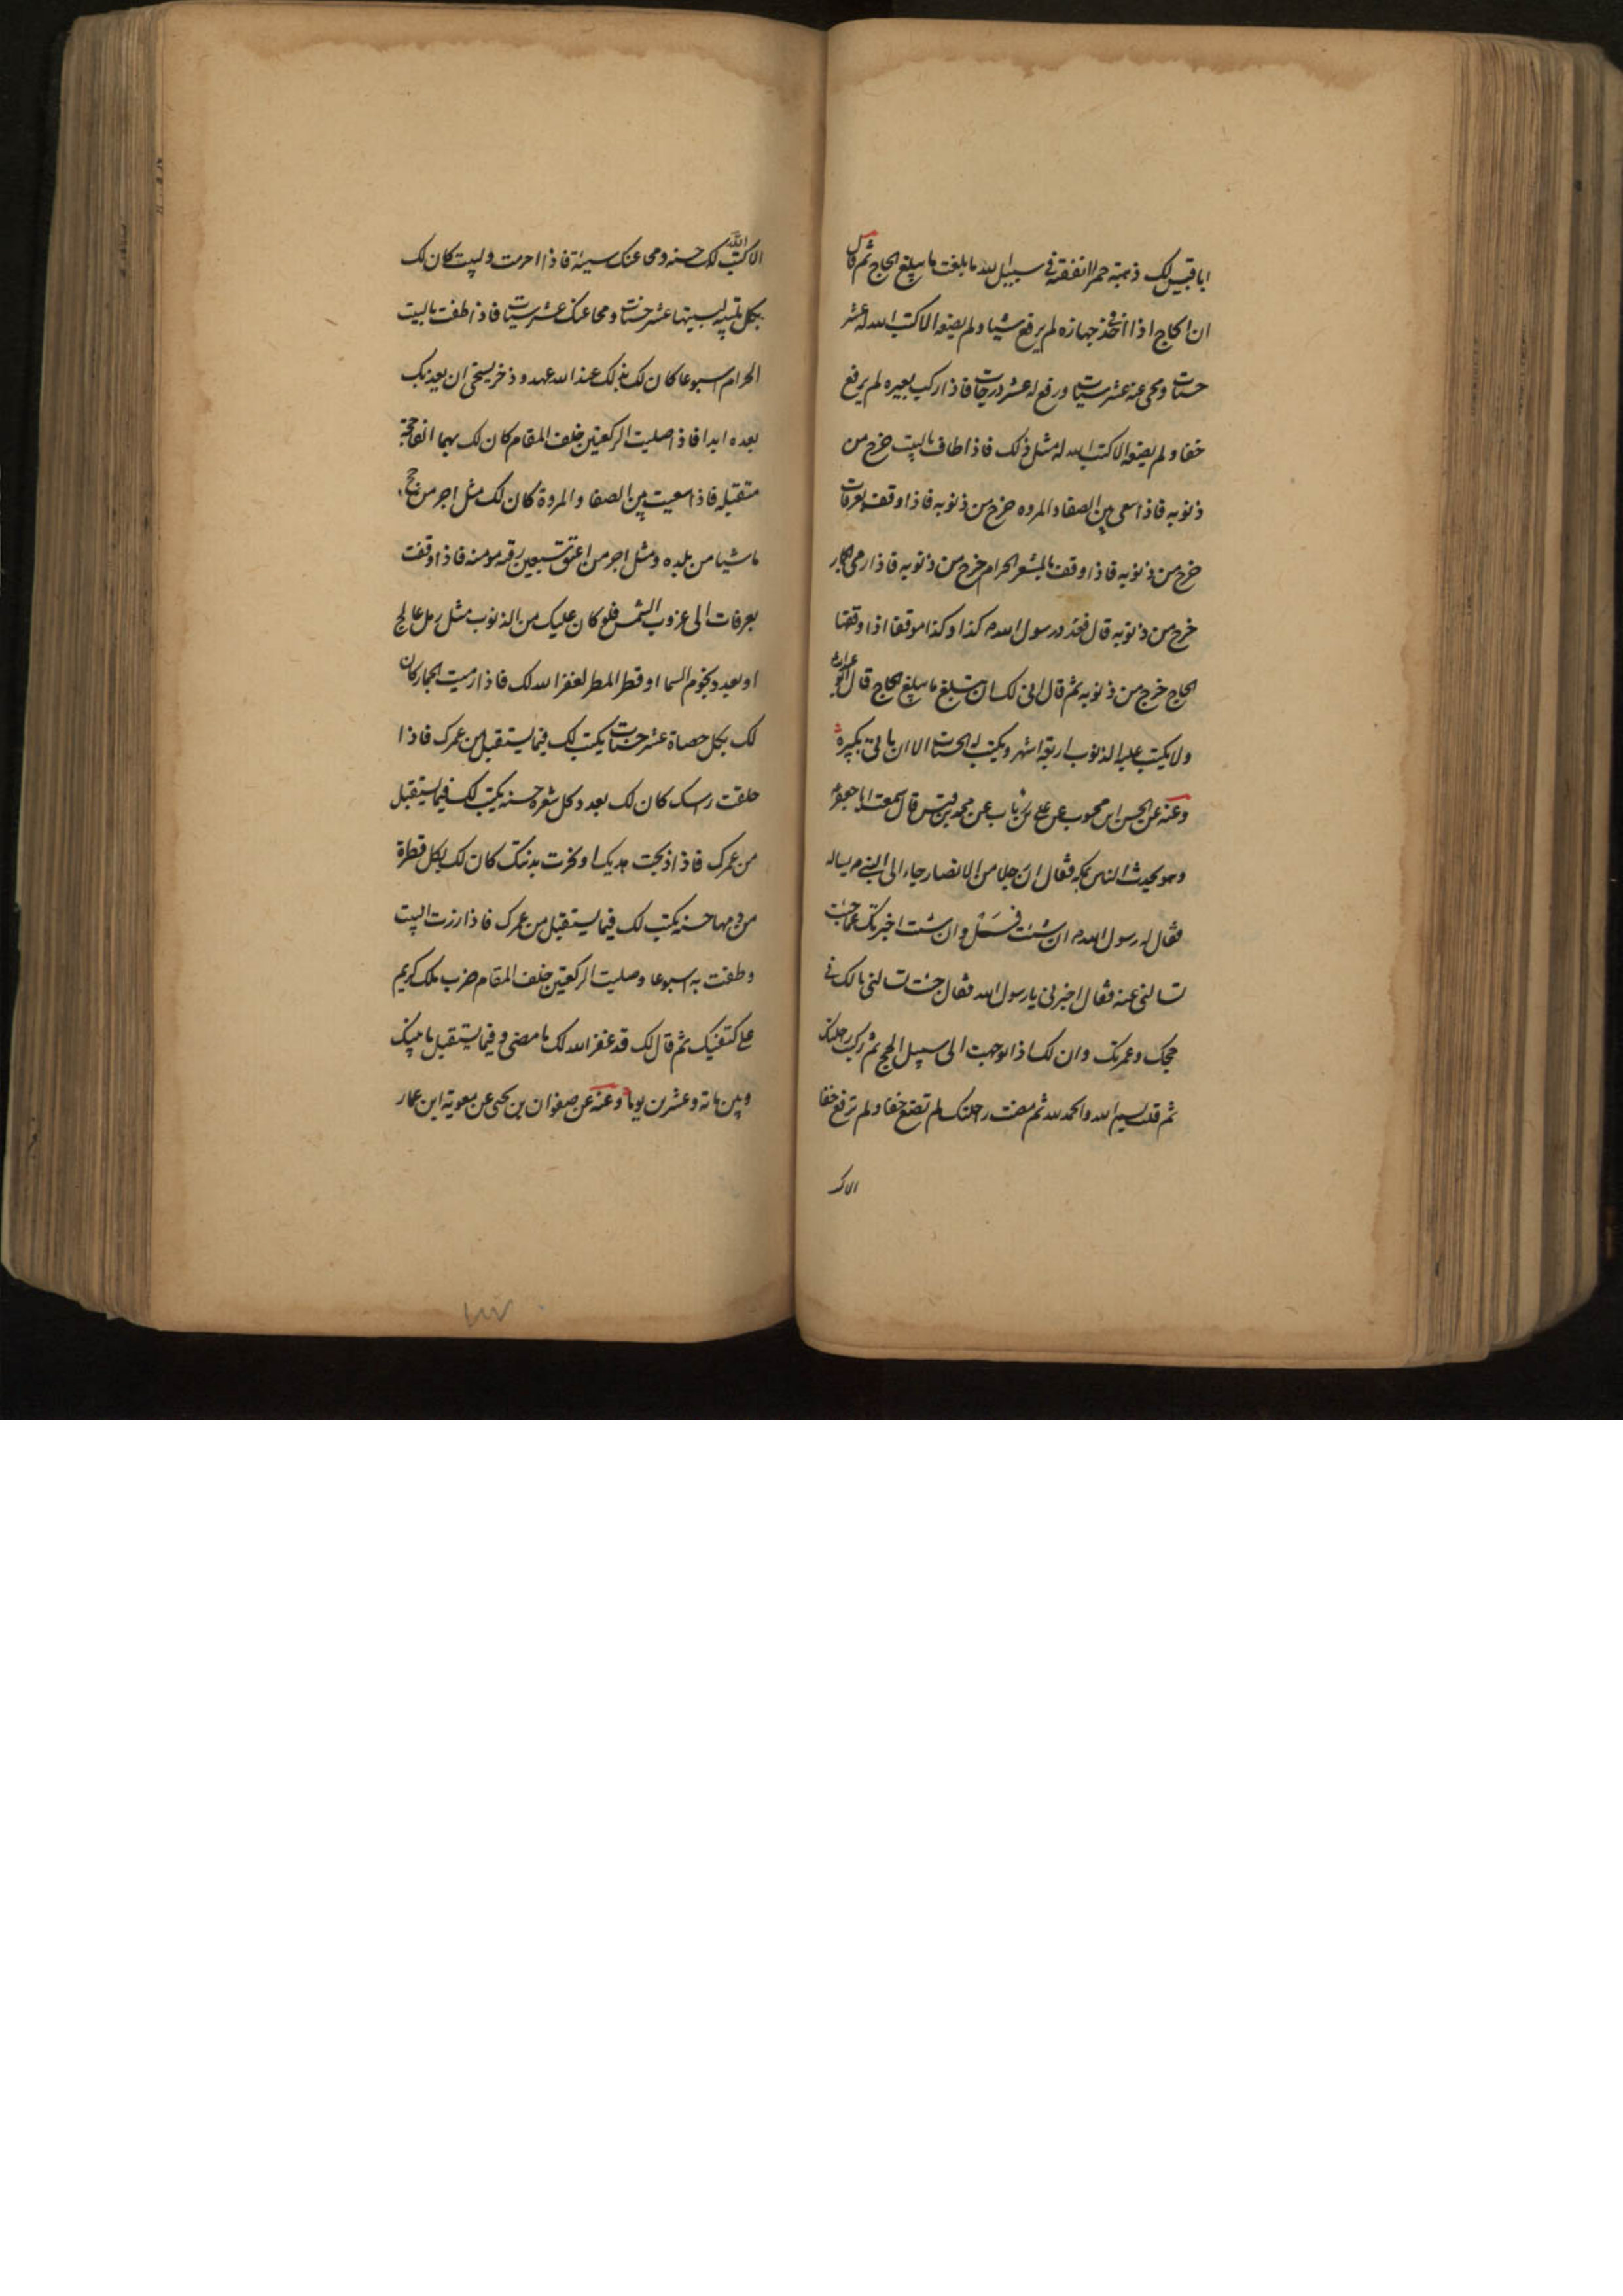 ابا قبيس لك ذهبة حمرا انفقته في سبيل الله ما بلغت ما يبلغ الحاج ثم قال
ان الحاج اذا اخذ في جهازه لم يرفع شيا ولم يضعه الا كتب الله له عشر
حسنات ومحى عنه عشر سيات ورفع له عشر درجات فاذا ركب بعيره لم يرفع
خفا ولم يضعه الا كتب الله له مثل ذلك فاذا طاف بالبيت خرج من
ذنوبه فاذا سعى بين الصفا والمروه خرج من ذنوبه فاذا وقف بعرفات
خرج من ذنوبه فاذا وقف بالمشعر الحرام خرج من ذنوبه فاذا رمى الجمار
خرج من ذنوبه قال فعدد رسول الله ص كذا وكذا موقفا اذا وقفها
الحاج خرج من ذنوبه ثم قال انى لك ان تبلغ ما يبلغ الحاج قال ابو عبد الله ع
ولا يكتب عليه الذنوب اربعة اشهر ويكتب له الحسنات الا ان ياتي بكبيرة
وعنه عن الحسن ابن محبوب عن علي بن رئاب عن محمد بن قيس قال سمعت ابا جعفر ع
وهو يحدث الناس بمكه فقال ان رجلا من الانصار جاء الى النبي ص يساله
فقال له رسول الله ص ان شئت فسل وان شئت اخبرتك عما جئت
تسالني عنه فقال اخبرني يا رسول الله فقال جئت تسالني مالك في
حجك وعمرتك وان لك اذا توجهت الى سبيل الحج ثم ركبت راحلتك
ثم قلت بسم الله والحمد لله ثم مضت راحلتك لم تضع خفا ولم ترفع خفا
الا ك
الا كتب الله لك حسنه ومحا عنك سيئة فاذا احرمت ولبيت كان لك
بكل تلبيه لبيتها عشر حسنات ومحا عنك عشر سيات فاذ اطفت بالبيت
الحرام اسبوعا كان لك بذلك عند الله عهد وذخر يستحي ان يعذبك
بعده ابدا فاذ اصليت الركعتين خلف المقام كان لك بهما الفا حجة
متقبله فاذا سعيت بين الصفا والمروة كان لك مثل اجر من حج
ماشيا من بلده ومثل اجر من اعتق سبعين رقبه مومنه فاذا وقفت
بعرفات الى غروب الشمس فلو كان عليك من الذنوب مثل رمل عالج
او بعدد نجوم السما او قطر المطر لغفرا الله لك فاذا رميت الجمار كان
لك بكل حصاة عشر حسنات يكتب لك فيما يستقبل من عمرك فاذا
حلقت راسك كان لك بعدد كل شعره حسنه يكتب لك فيما يستقبل
من عمرك فاذا ذبحت هديك او نحرت بدنتك كان لك بكل قطرة
من دمها حسنه يكتب لك فيما يستقبل من عمرك فاذا زرت البيت
وطفت به اسبوعا وصليت الركعتين خلف المقام ضرب ملك كريم
على كتفيك ثم قال لك قد غفر الله لك ما مضى وفيما يستقبل ما بينك
وبين مائة وعشرين يوما وعنه عن صفوان بن يحيى عن معوية ابن عمار